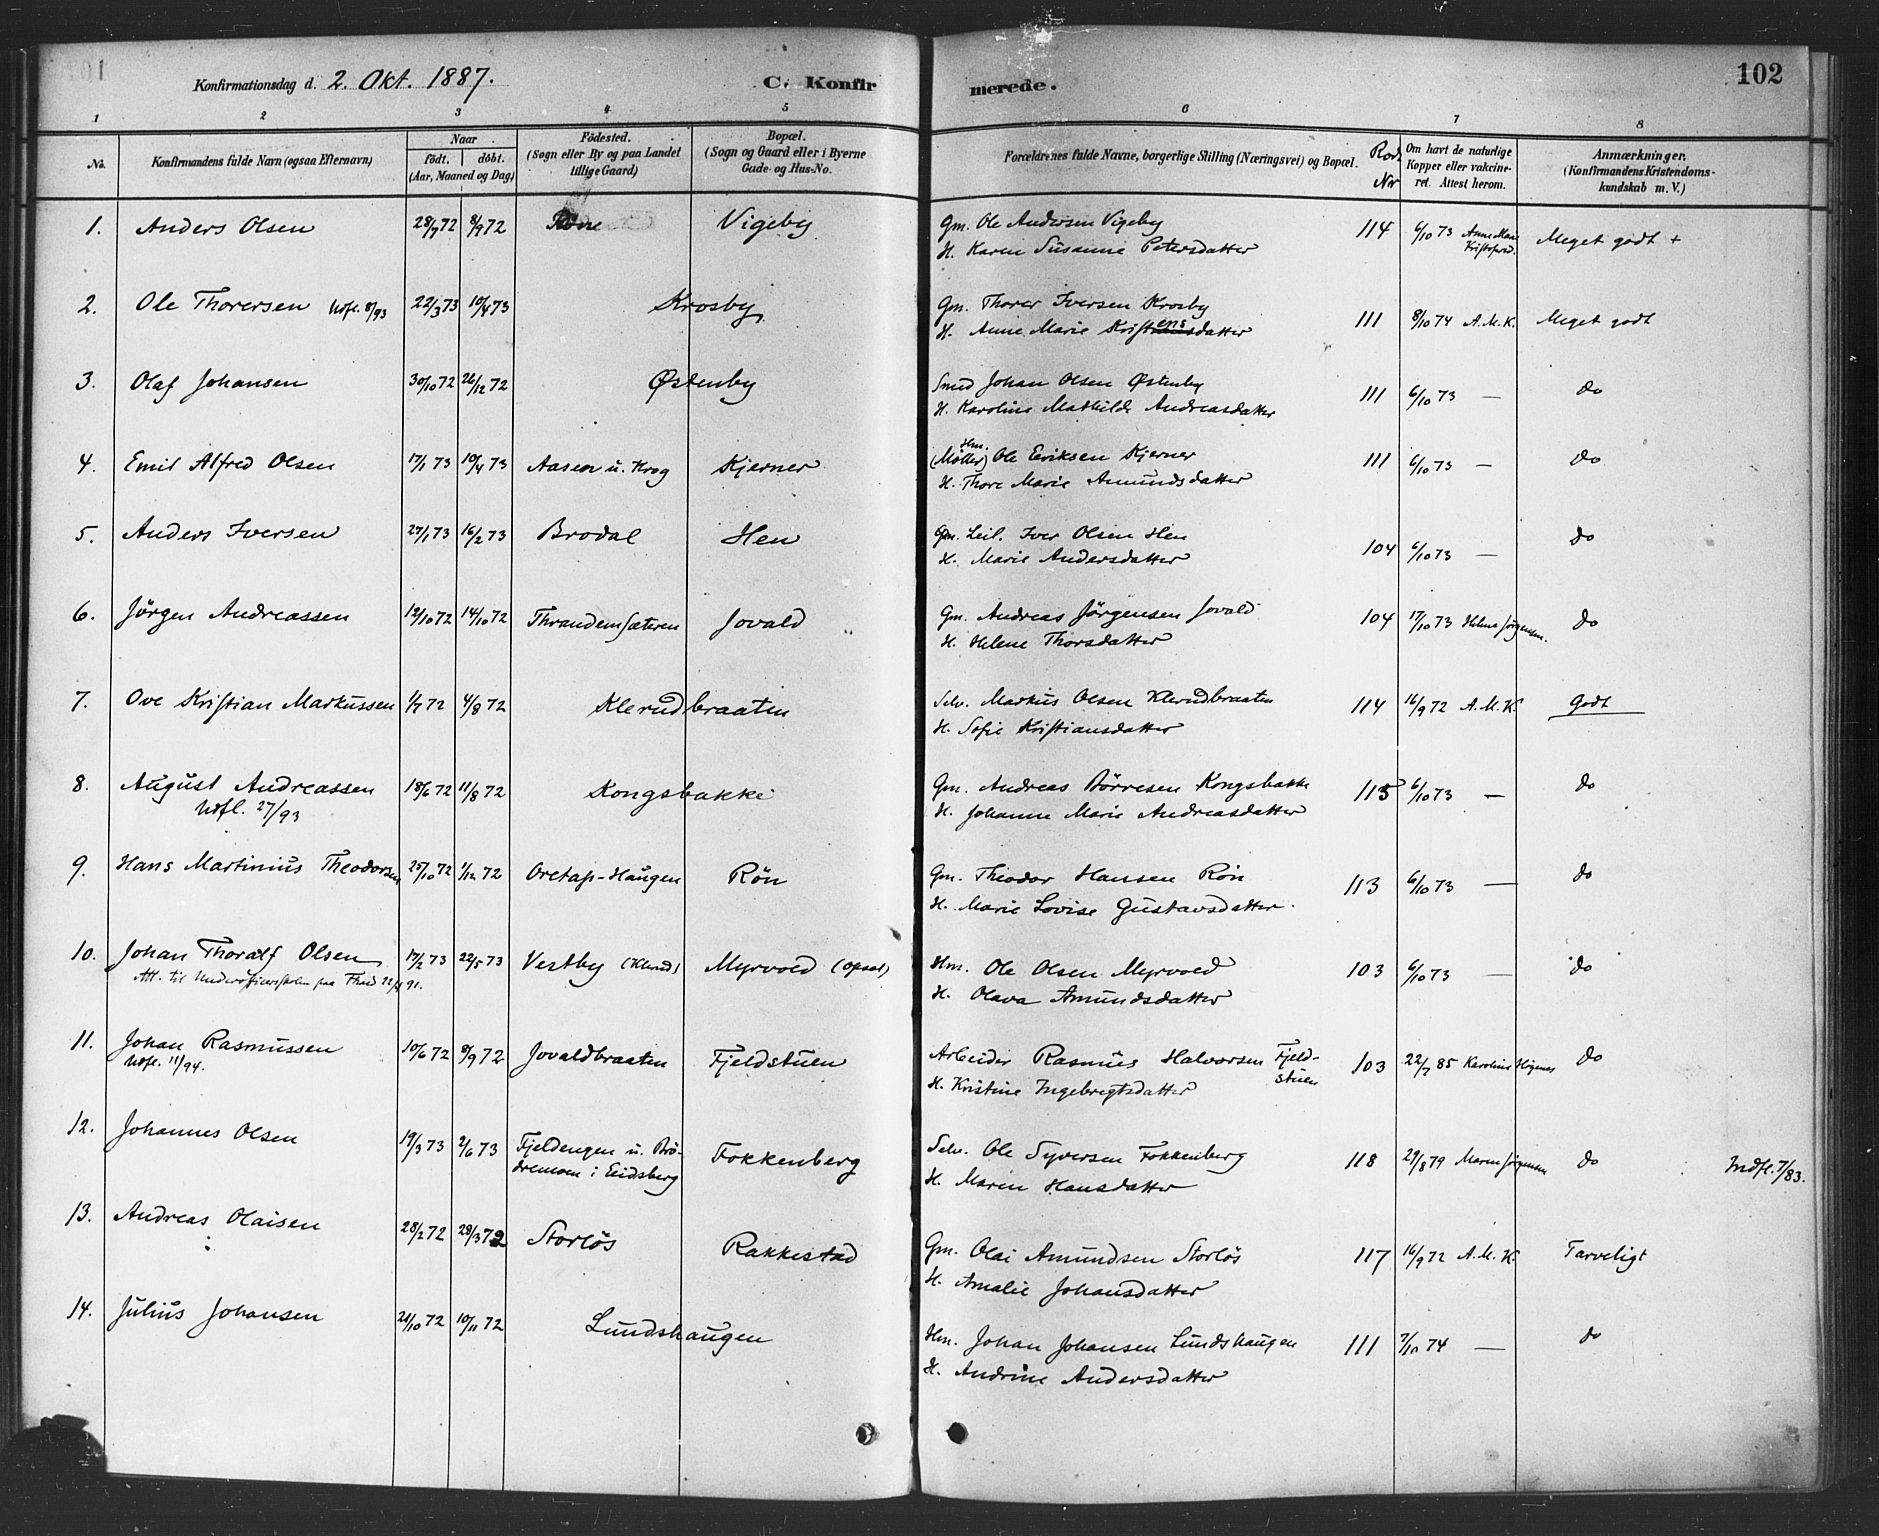 Konfirmationsdag d. 2. Okt. 1887. C. Konfirmerede. 102
1 2 3 4 5 6 7 8
No. Konfirmandens fulde Navn (ogsaa Efternavn) Naar født. (Aar, Maaned og Dag) døbt. Födested. (Sogn eller By og paa Landet tillige Gaard) Bopæl. (Sogn og Gaard eller i Byerne Gade- og Hus-No. Forældrenes fulde Navne, borgerlige Stilling (Næringsvei) og Bopæl. Rode Nr Om havt de naturlige Kopper eller vakcineret. Attest herom. Anmærkninger. (Konfirmandens Kristendomskundskab m. V.)
1. Anders Olsen 28/7 72 8/9 72 Vigeby Gm. Ole Andersen Vigeby 114 6/10 73 Anne Mari Kristofersd. Meget godt +
H. Karen Susanne Petersdatter
2. Ole Thorersen Udfl. 8/93 22/3 73 10/4 73 Krosby Gm. Thorer Iversen Krosby 111 8/10 74 A.M.K. Meget godt
H. Anne Marie Kristensdatter
3. Olaf Johansen 30/10 72 26/12 72 Østenby Smed Johan Olsen Østenby 111 6/10 73 — do
H. Karoline Mathilde Andreasdatter
4. Emil Alfred Olsen 17/1 73 10/4 73 Aasen u. Krog Kjerner Hm. (Møller) Ole Eriksen Kjerner 111 6/10 73 — do
H. Thore Marie Amundsdatter
5. Anders Iversen 27/1 73 16/2 73 Brodal Hen Gm. Leil. Iver Olsen Hen 104 6/10 73 — do
H. Marie Andersdatter
6. Jörgen Andreassen 12/10 72 14/10 72 Thrandemsæteren Jovald Gm. Andreas Jörgensen Jovald 104 17/10 73 Helene Jörgensen. do
H. Helene Thorsdatter
7. Ove Kristian Markussen 1/7 72 4/8 72 Klerudbraaten Selv. Markus Olsen Klerudbraaten 114 16/9 72 A.M.K. Godt
H. Sofie Kristiansdatter
8. August Andreassen 18/6 72 11/8 72 Kongsbakke Gm. Andreas Börresen Kongsbakke 115 6/10 73 — do
Udfl. 27/93 H. Johanne Marie Andreasdatter
9. Hans Martinius Theodorsen 25/10 72 1/12 72 Oretap-Haugen Rön Gm. Theodor Hansen Rön 113 6/10 73 — do
H. Marie Lovise Gustavsdatter.
10. Johan Thoralf Olsen 17/2 73 22/5 73 Vestby (Klerud) Myrvold (Opsal) Hm. Ole Olsen Myrvold 103 6/10 73 — do
Att. til Underofficerskolen paa 91. H. Olava Amundsdatter
11. Johan Rasmussen 10/6 72 8/9 72 Jovaldbraaten Fjeldstuen Arbeider Rasmus Halvorsen Fjeldstuen 103 22/7 85 Karoline do
Udfl. 11/94. H. Kristine Ingebregtsdatter
12. Johannes Olsen 19/3 73 2/6 73 Fjeldengen u. Brödremoen i Eidsberg Fokkenberg Selv. Ole Syversen Fokkenberg 118 29/8 79 Maren Jörgensen do Indfl. 7/83.
H. Maren Hansdatter
13. Andreas Olaisen 28/2 72 29/3 72 Storlös Rakkestad Gm. Olai Amundsen Storlös 117 16/9 72 A.M.K. Tarveligt
H. Amalie Johansdatter
14. Julius Johansen 21/10 72 10/11 72 Lundshaugen Hm. Johan Johansen Lundshaugen 111 7/10 74 — do
H. Andrine Andersdatter